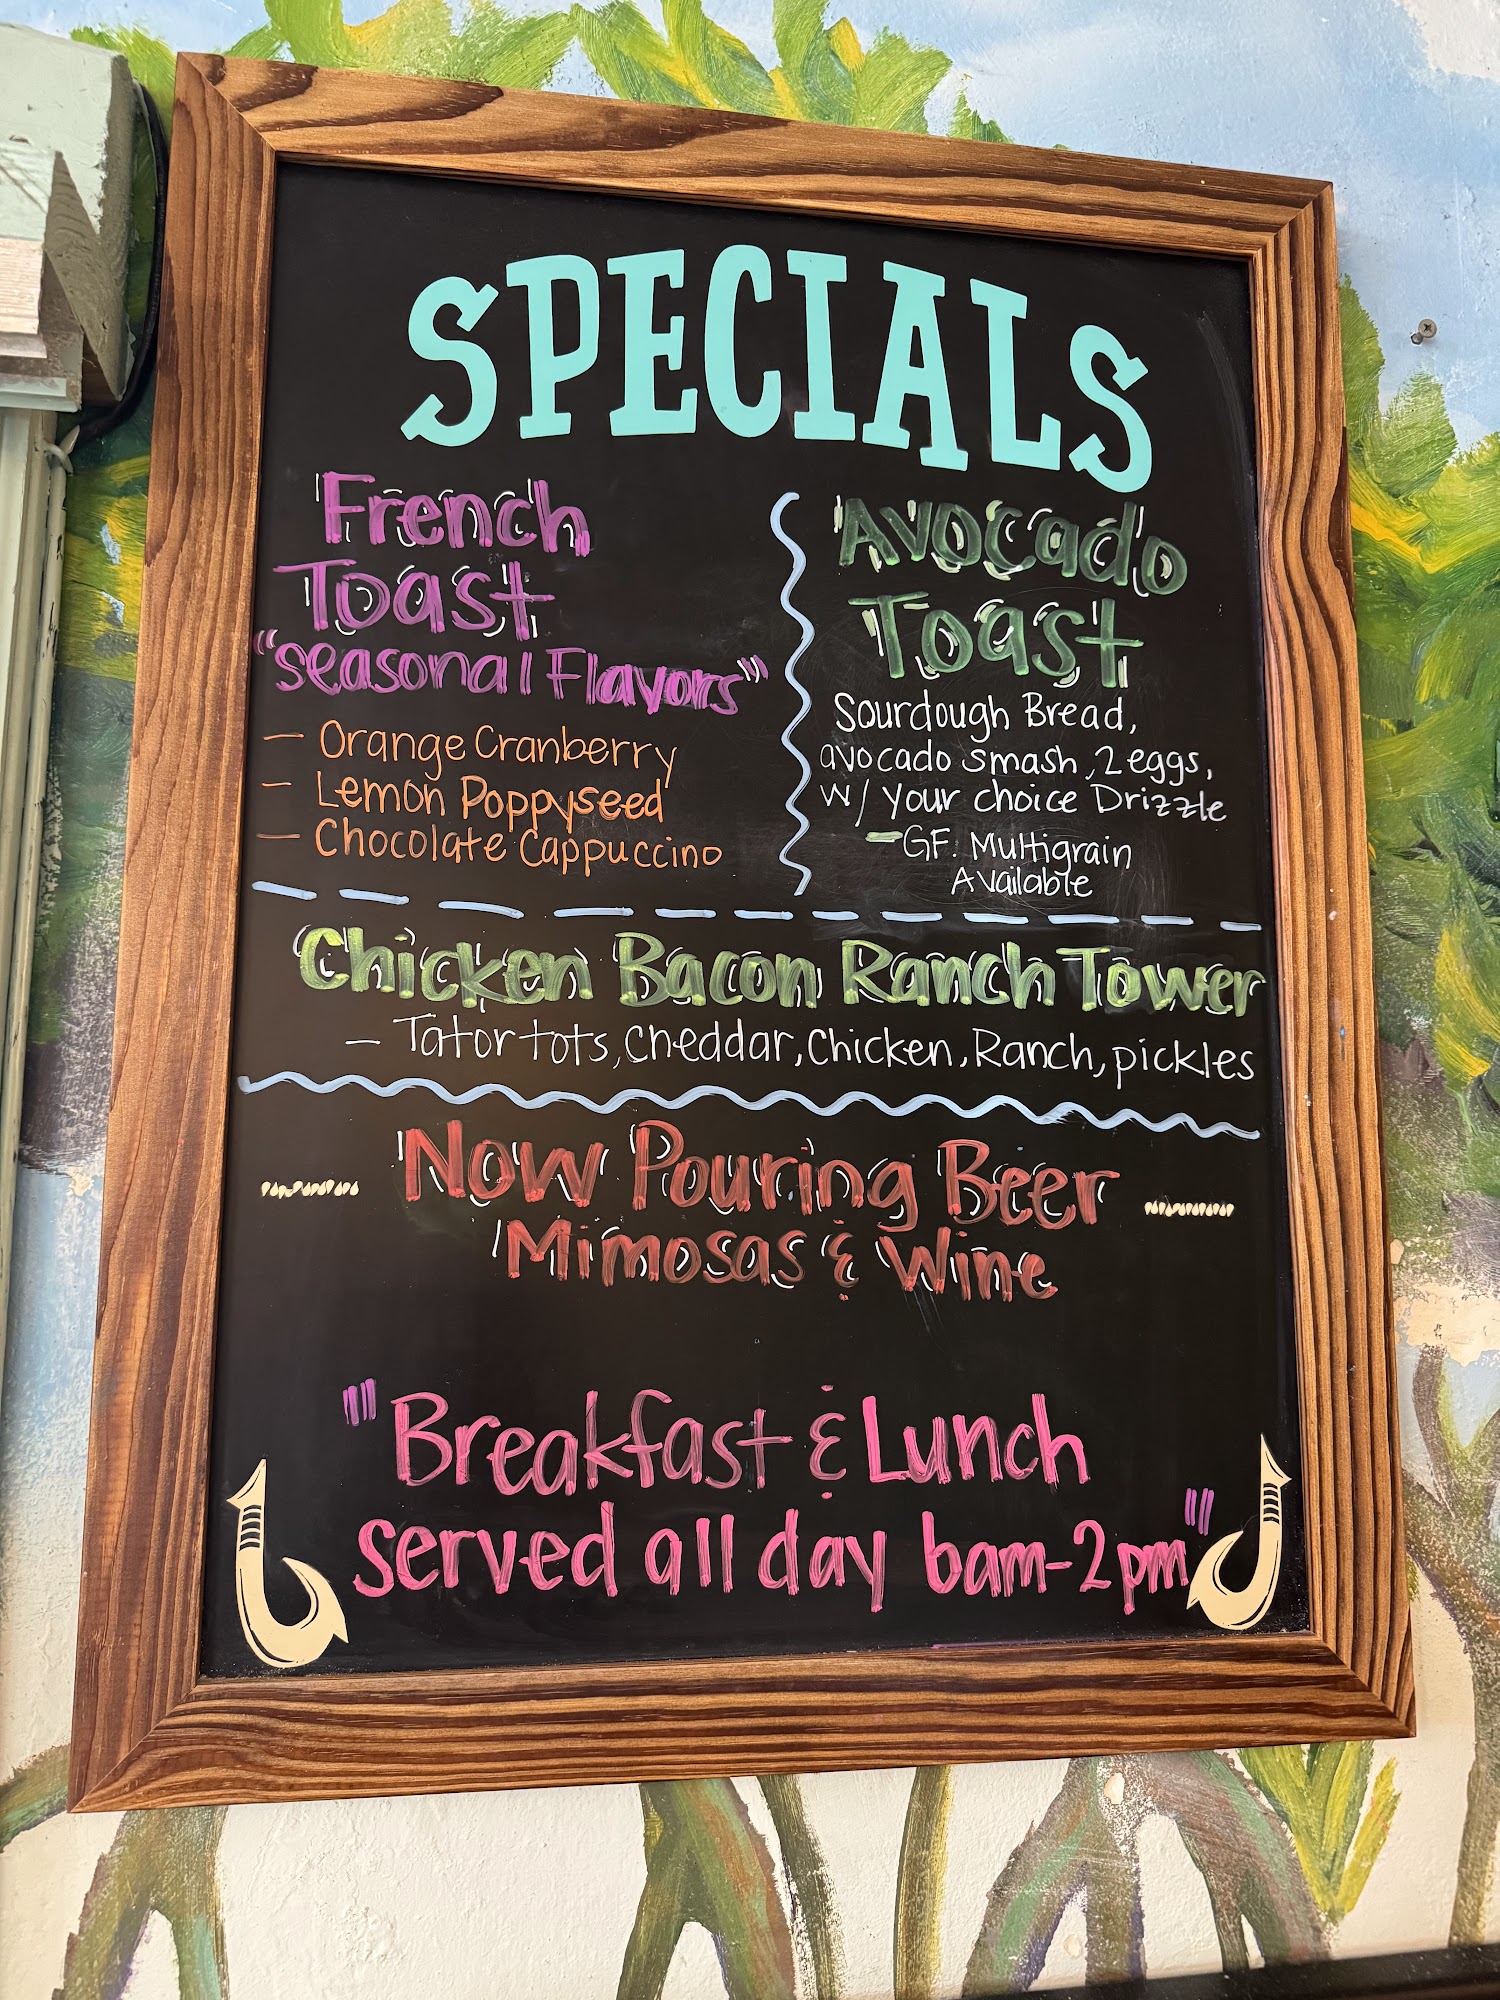 SPECIALS
French
Toast
"seasonal Flavors"
- Orange Cranberry
- Lemon Poppyseed
- Chocolate Cappuccino
Avocado
Toast
Sourdough Bread,
avocado smash, 2 eggs,
w/ your choice Drizzle
- GF. Multigrain
Available
Chicken Bacon Ranch Tower
- Tator tots, Cheddar, Chicken, Ranch, pickles
Now Pouring Beer
Mimosas & Wine
"Breakfast & Lunch
served all day 6am-2pm"